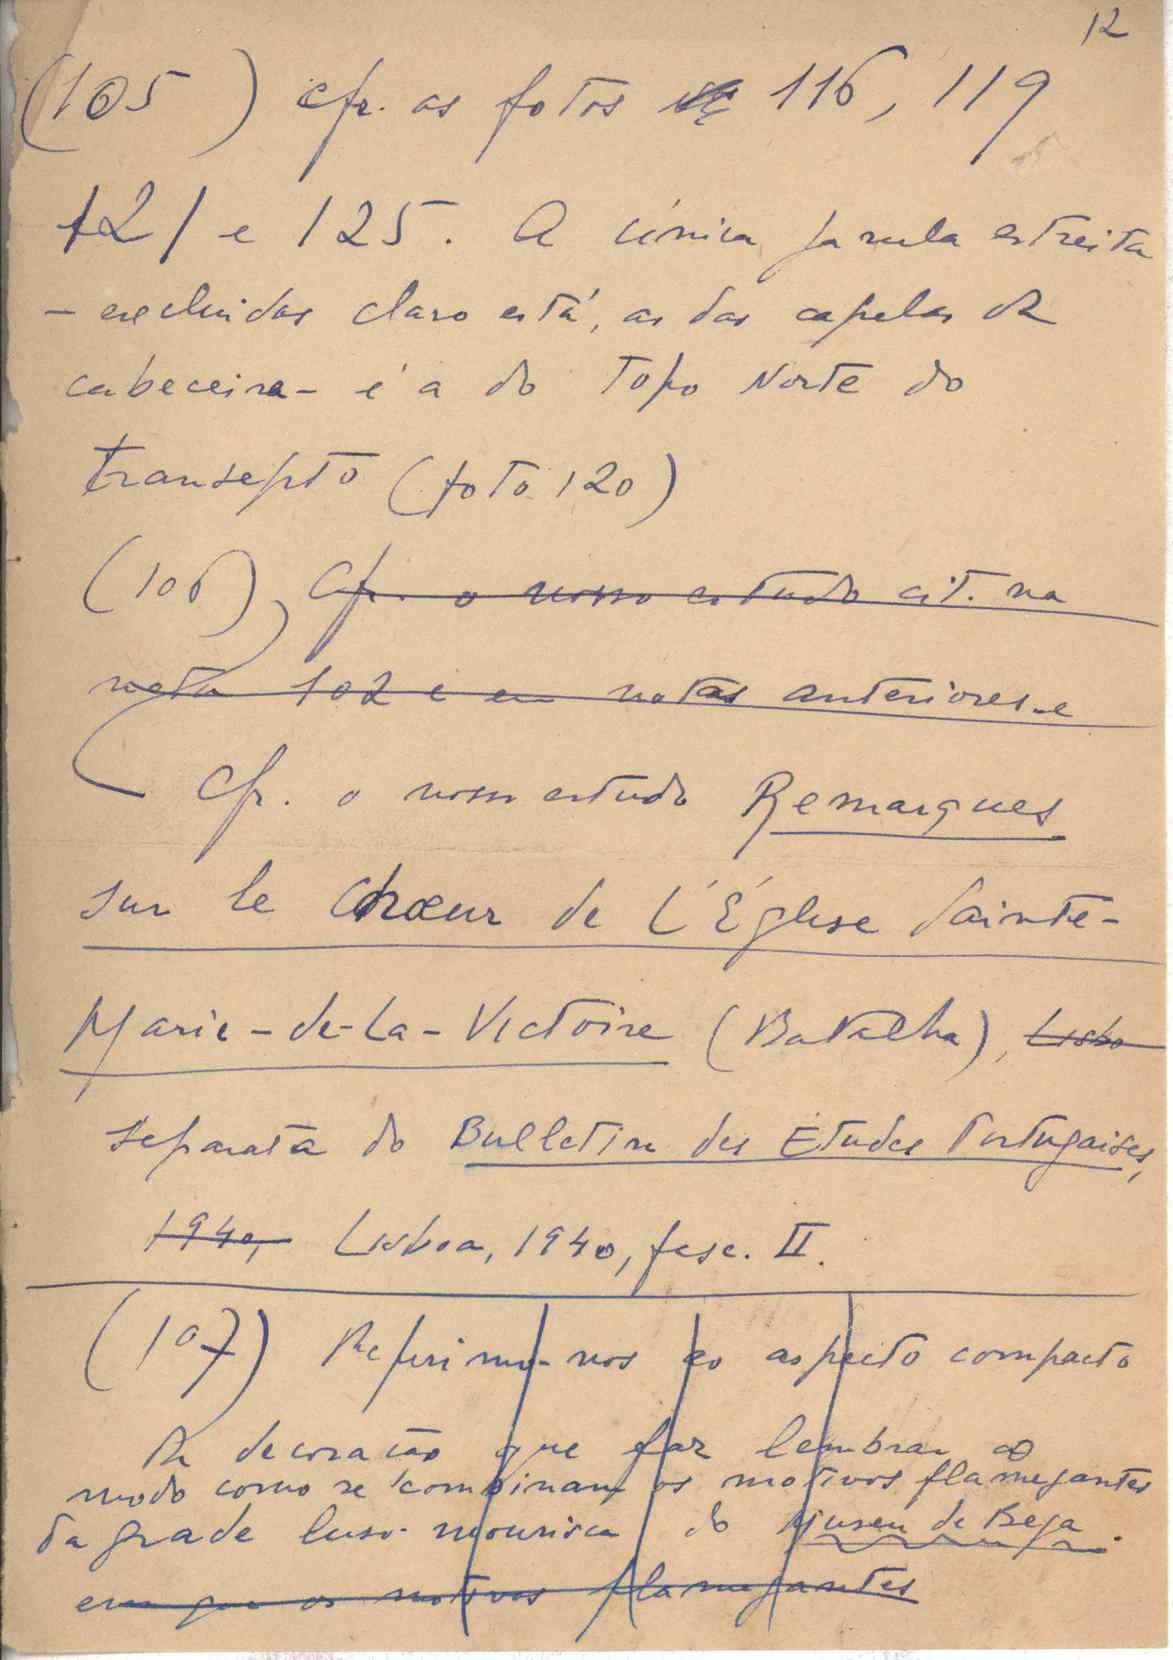 12
(105) cfr. as fotos 116, 119
121 e 125. A única janela estreita
- excluidas claro está, as das capelas da
cabeceira - é a do topo Norte do
transepto (foto 120)
(106) Cfr. o nosso estudo cit. na
nota 102 e em notas anteriores e
Cfr. o nosso estudo Remarques
sur le Chœur de L'Église Sainte-
Marie-de-La-Victoire (Batalha), Lisbo
separata do Bulletin des Études Portugaises,
1940, Lisboa, 1940, fasc. II.
(107) Referimo-nos ao aspecto compacto
da decoração que faz lembrar o
modo como se combinam os motivos flamejantes
da grade luso-mourisca do Museu de Beja.
em que os motivos flamejantes